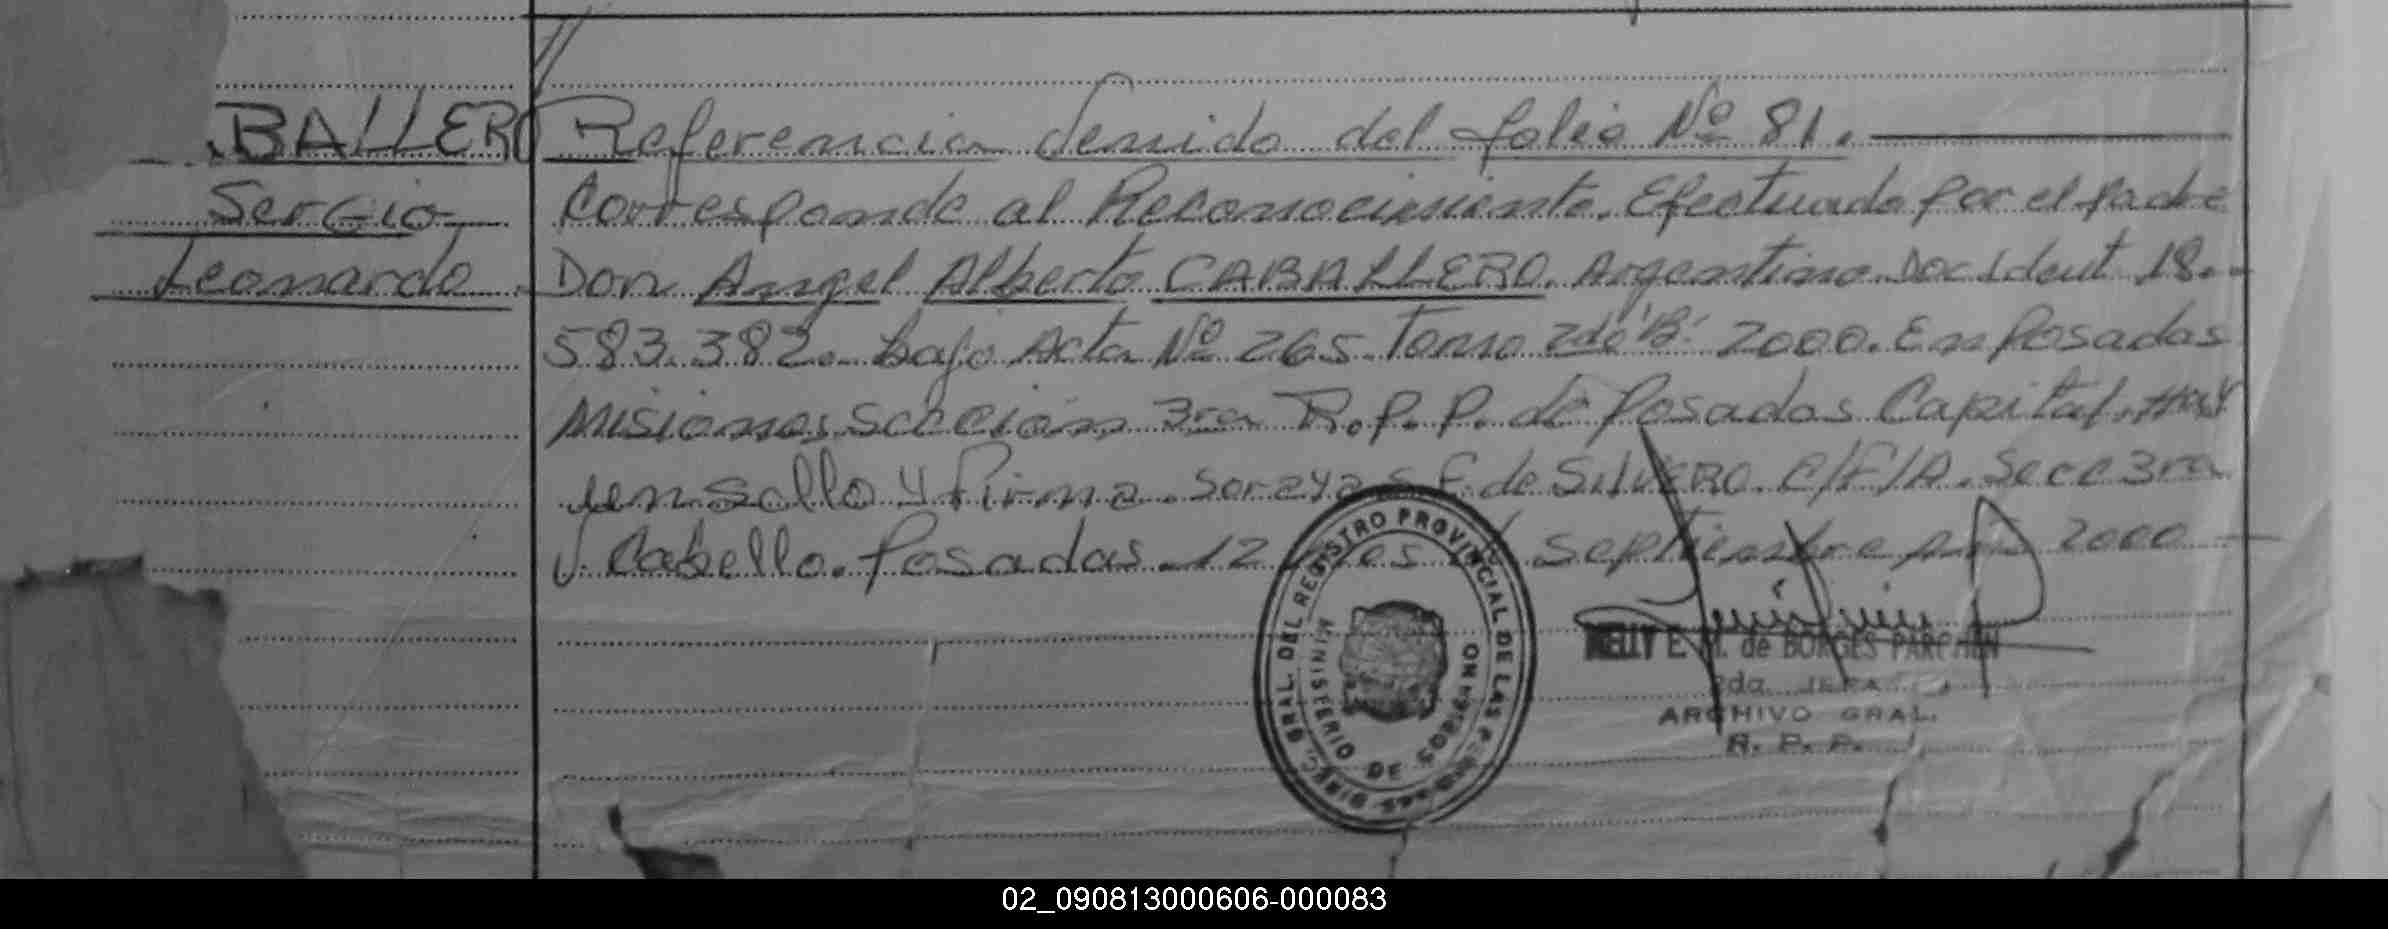 BALLERO
Sergio
Leonardo
Referencia Venido del folio Nº 81.
Corresponde al Reconocimiento. Efectuado por el padre
Don Angel Alberto CABALLERO. Argentino Doc Ident 18.-
583.382. bajo Acta Nº 265 Tomo 2do "B" 2000. En Posadas
Misiones Sección 3ra R.P.P. de Posadas Capital. Hay
un sello y firma. Soraya S. F. de SILVERO. C/F/A. Secc 3ra
V. Cabello. Posadas. 12 mes de Septiembre 2000
DIREC. GRAL. DEL REGISTRO PROVINCIAL DE LAS PERSONAS
MINISTERIO DE GOBIERNO
NELLY E. M. de BORGES PARCHEN
2da JEFA
ARCHIVO GRAL.
R. P. P.
02_090813000606-000083